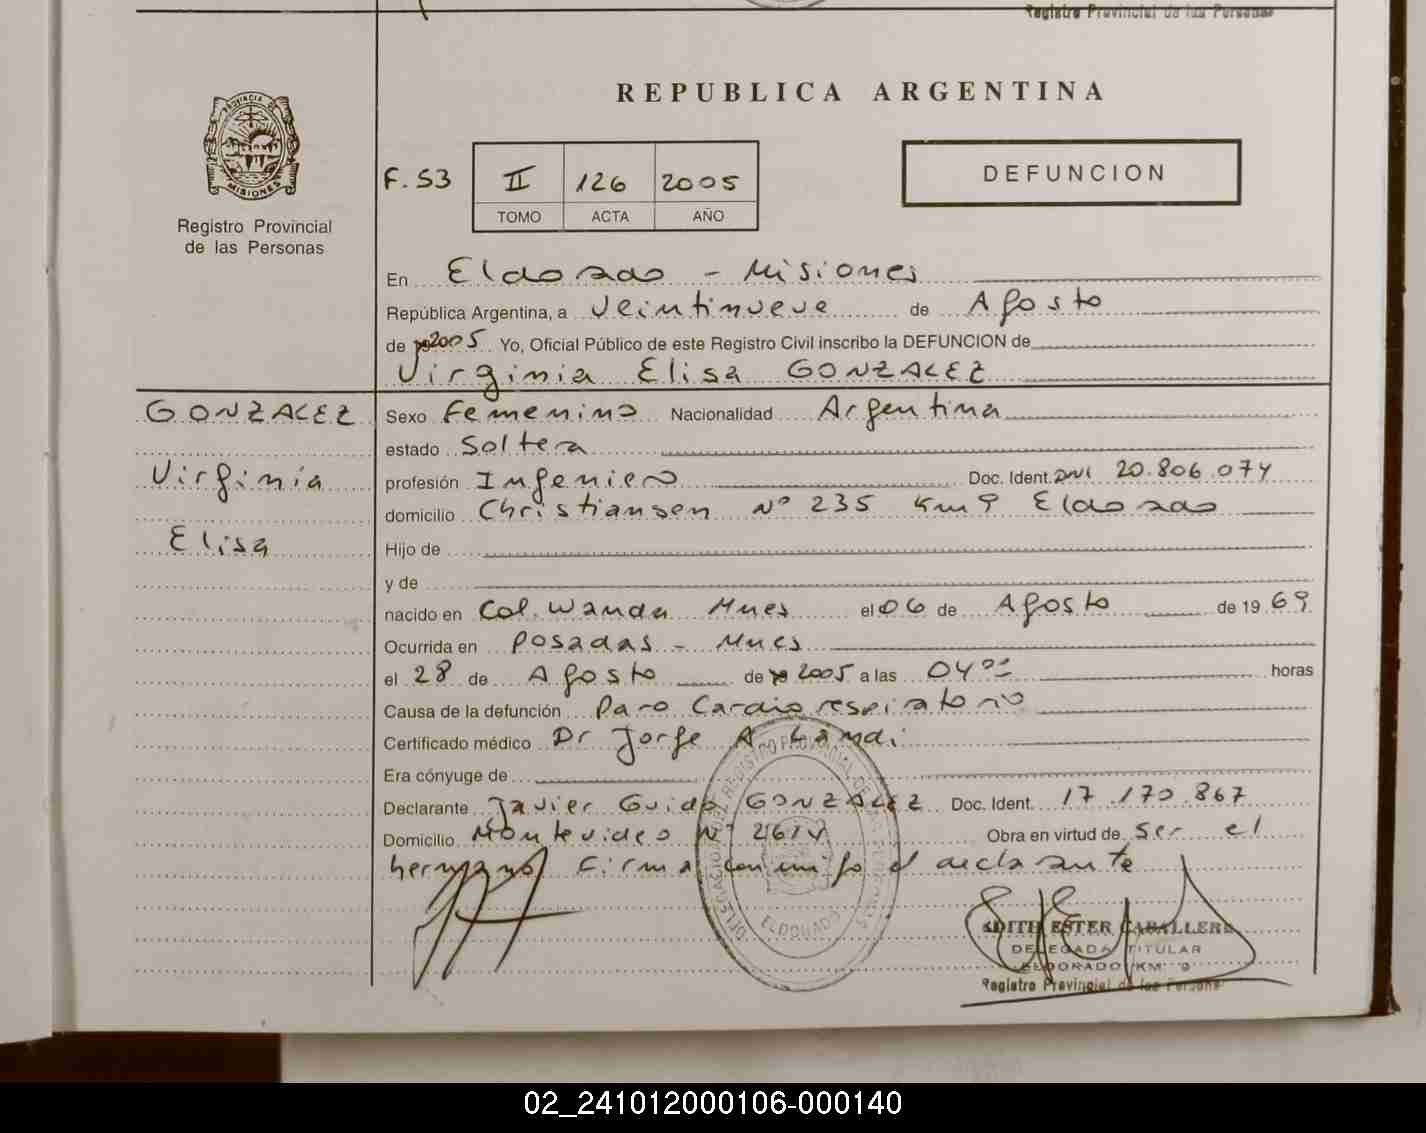 Registro Provincial de las Personas
REPUBLICA ARGENTINA
PROVINCIA DE
MISIONES
Registro Provincial
de las Personas
F. 53
II 126 2005
TOMO ACTA AÑO
DEFUNCION
En Eldorado - Misiones
República Argentina, a veintinueve de Agosto
de 2005 Yo, Oficial Público de este Registro Civil inscribo la DEFUNCION de
Virginia Elisa GONZALEZ
GONZALEZ
Virginia
Elisa
Sexo Femenino Nacionalidad Argentina
estado Soltera
profesión Ingeniero Doc. Ident. DNI 20.806.074
domicilio Christiansen Nº 235 Km 9 Eldorado
Hijo de
y de
nacido en Col. Wanda Mnes el 06 de Agosto de 19 69
Ocurrida en Posadas - Mnes
el 28 de Agosto de 2005 a las 04ºº horas
Causa de la defunción Paro Cardio respiratorio
Certificado médico Dr Jorge A Landi
Era cónyuge de
Declarante Javier Guido GONZALEZ Doc. Ident. 17.170.867
Domicilio Montevideo Nº 2614 Obra en virtud de Ser el
hermano Firma conmigo el declarante
DELEGACION DEL REGISTRO PROVINCIAL DE LAS PERSONAS
ELDORADO
EDITH ESTER CABALLERO
DELEGADA TITULAR
ELDORADO KM 9
Registro Provincial de las Personas
02_241012000106-000140